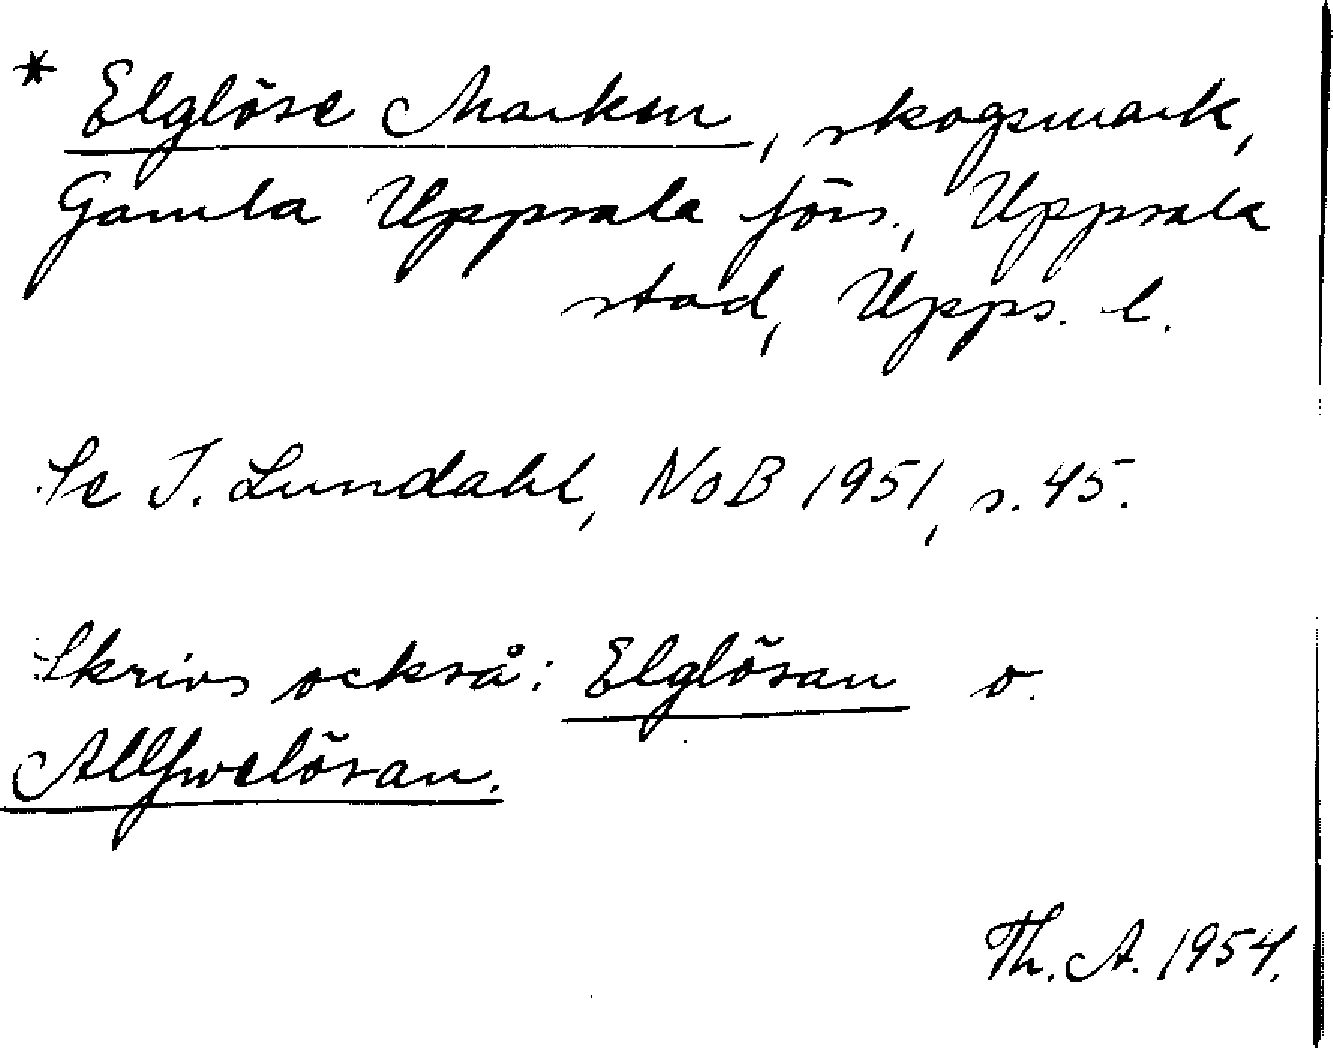 * Elglöse Marken, skogsmark,
Gamla Uppsala förs., Uppsala
stad, Upps. l.
Se I. Lundahl, NoB 1951, s. 45.
Skrivs också: Elglösan o.
Allfwelösan.
Th. A. 1954.